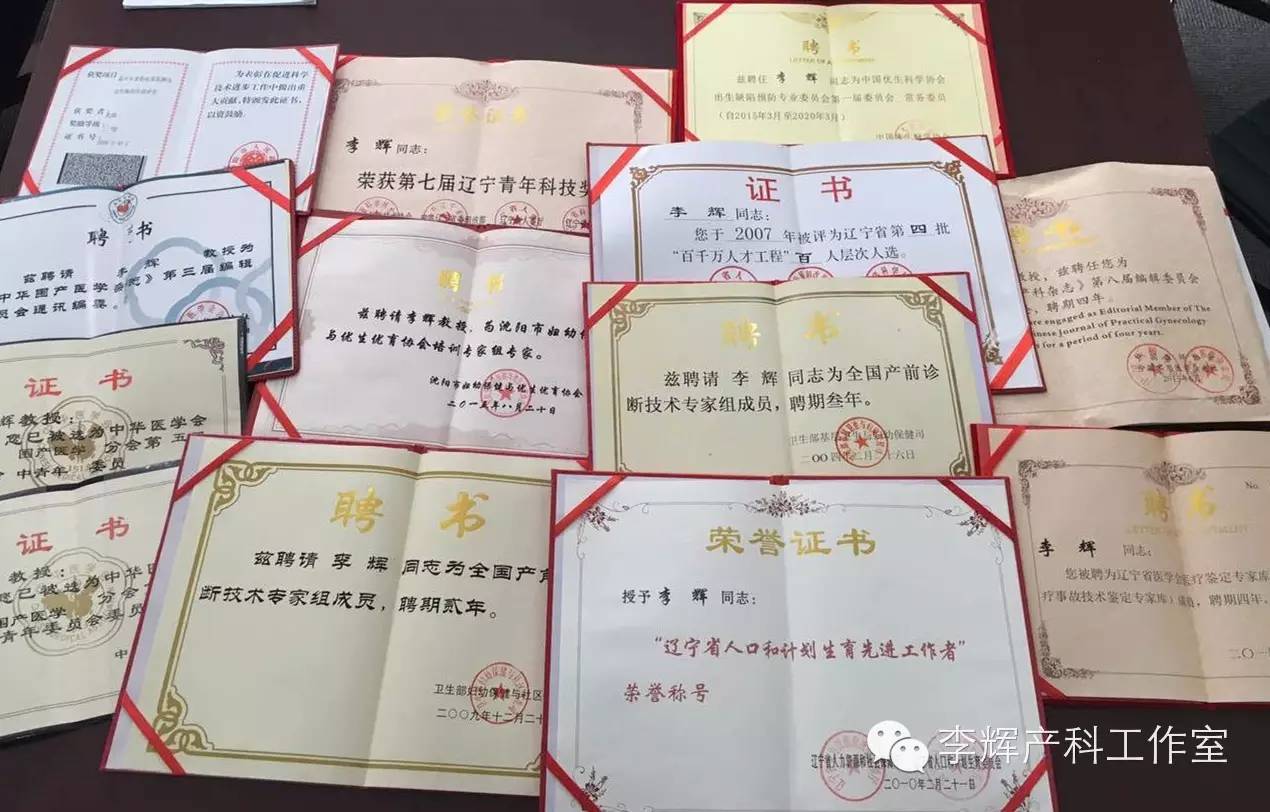 获奖项目
获奖者
奖励等级
证书号
为表彰在促进科学
技术进步工作中做出重
大贡献，特颁发此证书，
以资鼓励。
李辉 同志：
荣获第七届辽宁青年科技奖
聘书
兹聘任 李辉 同志为中国优生科学协会
出生缺陷预防专业委员会第一届委员会、常务委员
（自2015年3月至2020年3月）
聘书
兹聘请 李辉 教授为
中华围产医学杂志》第三届编辑
员会通讯编委。
聘书
兹聘请李辉教授，为沈阳市妇幼
与优生优育协会培训专家组专家。
沈阳市妇幼保健与优生优育协会
二〇一五年八月二十日
证书
李辉 同志：
您于 2007 年被评为辽宁省第 四 批
“百千万人才工程” 百 人层次人选。
教授，兹聘任您为
产科杂志》第八届编辑委员会
，聘期四年。
are engaged as Editorial Member of The
nese Journal of Practical Gynecology
for a period of four years.
聘书
兹聘请 李辉 同志为全国产前诊
断技术专家组成员，聘期叁年。
证书
辉教授：
您已被选为中华医学会
围产医学 分会第五届
中青年 委员
证书
教授：
您已被选为中华
围产医学 分会
青年委员会委员
聘书
兹聘请 李辉 同志为全国产前
断技术专家组成员，聘期贰年。
卫生部妇幼保健与社区
二〇〇九年十二月二十
荣誉证书
授予 李辉 同志：
“辽宁省人口和计划生育先进工作者”
荣誉称号
二〇一〇年二月二十一日
聘书
No.
李辉 同志：
您被聘为辽宁省医学会医疗鉴定专家库
，聘期四年。
李辉产科工作室